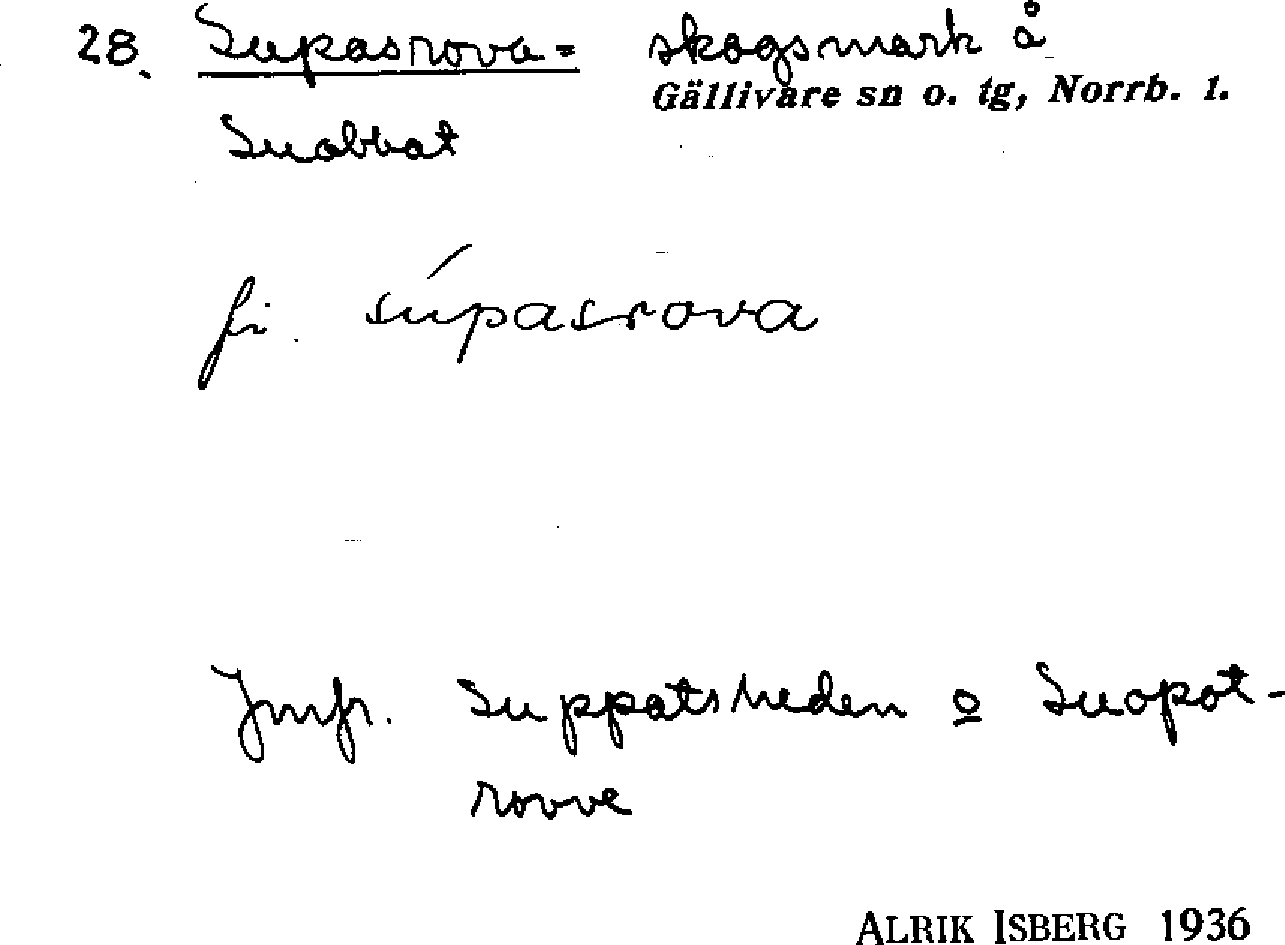 28. Supasrova= skogsmark å
Gällivare sn o. tg, Norrb. l.
Suobbat
fi. súpasrova
Jmfr. Suppatsheden o Suopot-
rovve
ALRIK ISBERG 1936